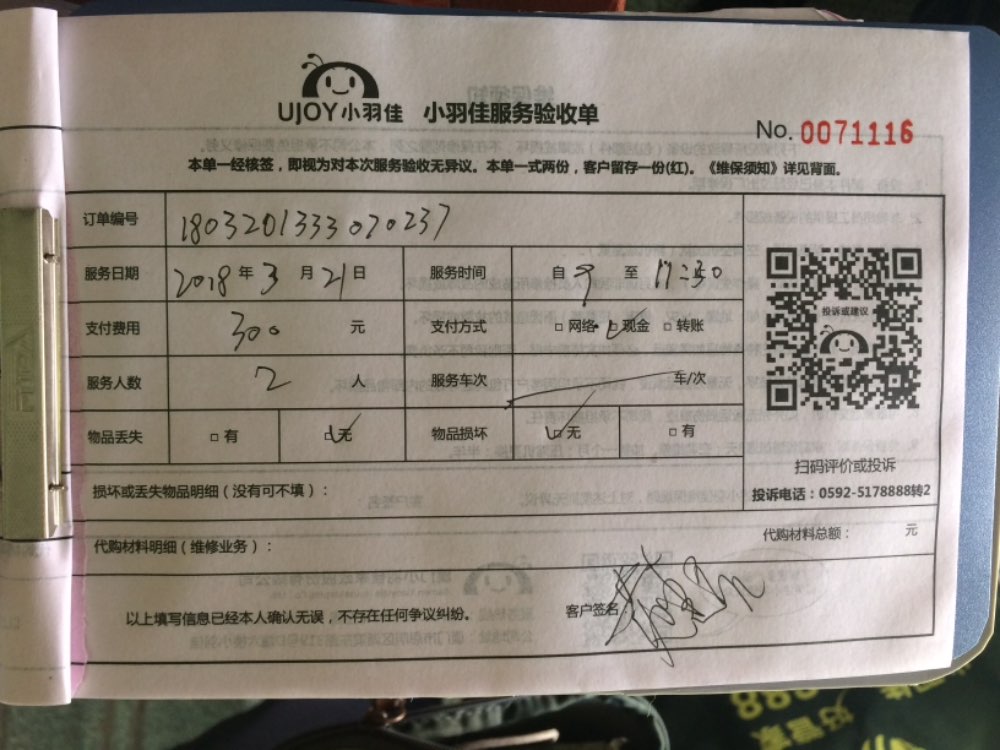 UJOY小羽佳 小羽佳服务验收单
No. 0071116
本单一经核签，即视为对本次服务验收无异议。本单一式两份，客户留存一份(红)。《维保须知》详见背面。
订单编号 1803201333070237
服务日期 2018年3月21日 服务时间 自9至11:30
支付费用 300元 支付方式 网络 现金 转账
投诉或建议
服务人数 2人 服务车次 车/次
物品丢失 有 无 物品损坏 无 有
扫码评价或投诉
损坏或丢失物品明细（没有可不填）：
投诉电话：0592-5178888转2
代购材料明细（维修业务）： 代购材料总额： 元
以上填写信息已经本人确认无误，不存在任何争议纠纷。 客户签名：